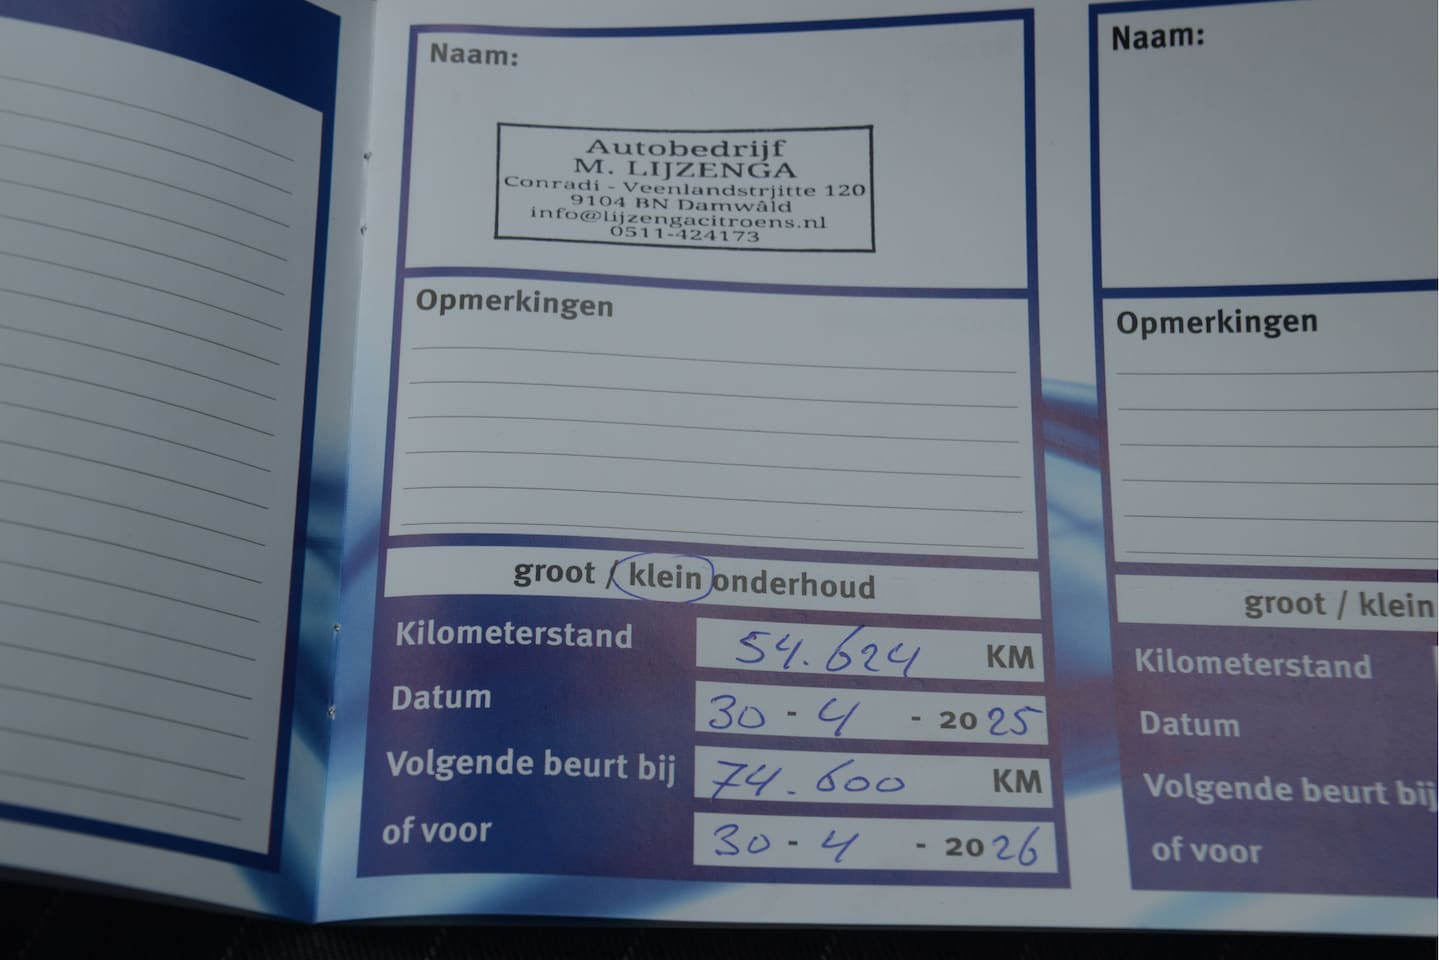 Naam:
Autobedrijf
M. LIJZENGA
Conradi - Veenlandstrjitte 120
9104 BN Damwâld
info@lijzengacitroens.nl
0511-424173
Opmerkingen
groot / klein onderhoud
Kilometerstand 54.624 KM
Datum 30 - 4 - 2025
Volgende beurt bij 74.600 KM
of voor 30 - 4 - 2026
Naam:
Opmerkingen
groot / klein
Kilometerstand
Datum
Volgende beurt bij
of voor